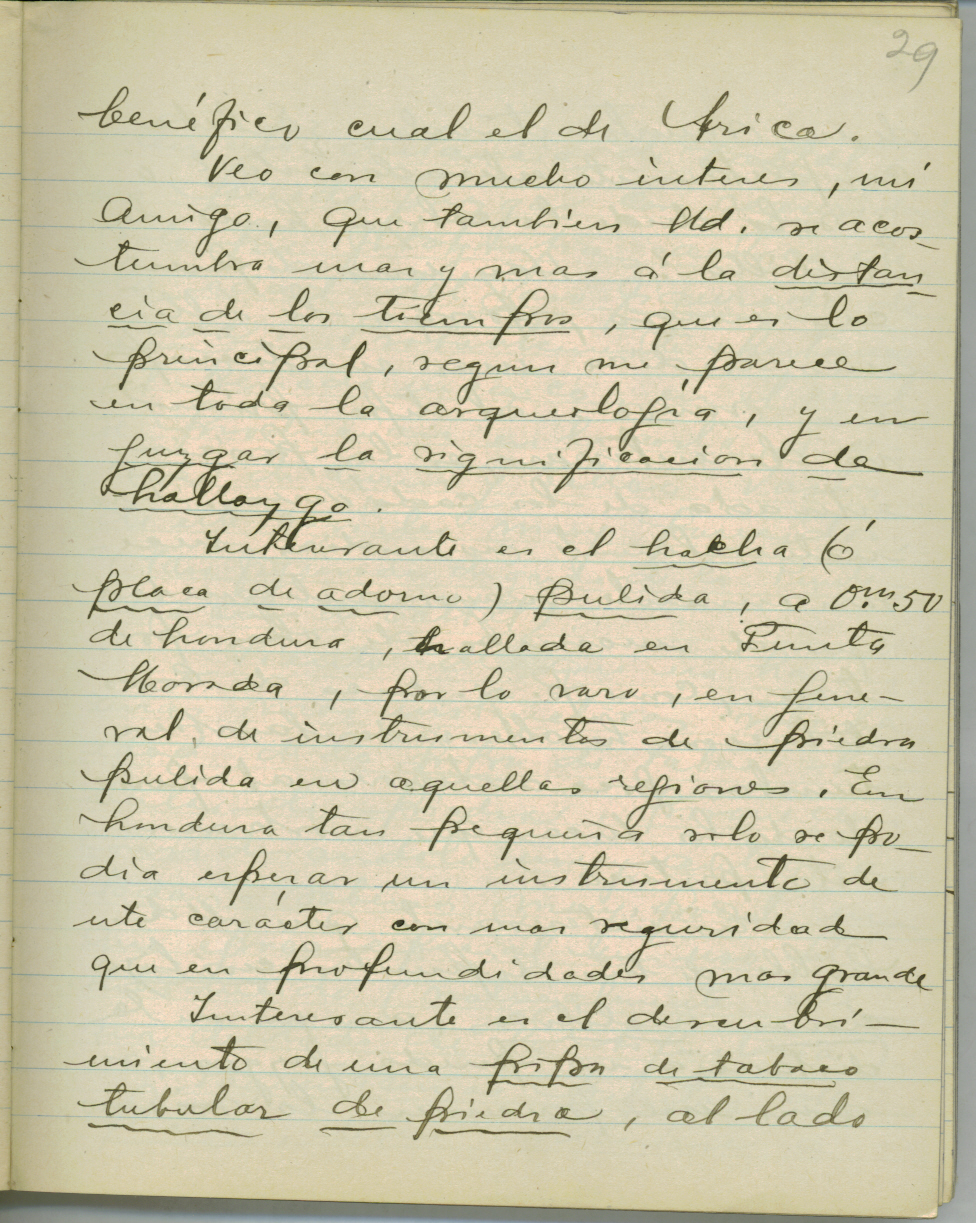 29
benéfico cual el de Arica.
Veo con mucho interes, mi
amigo, que tambien Ud. se acos-
tumbra mas y mas á la distan-
cia de los tiempos, que es lo
principal, segun me parece
en toda la arqueología, y en
juzgar la significacion de
hallazgo.
Interesante es el hacha (ó
placa de adorno) pulida, a 0.m50
de hondura, hallada en Punta
Morada, por lo raro, en gene-
ral, de instrumentos de piedra
pulida en aquellas regiones. En
hondura tan pequeña solo se po-
dia esperar un instrumento de
este carácter con mas seguridad
que en profundidades mas grande
Interesante es el descubri-
miento de una pipa de tabaco
tubular de piedra, al lado